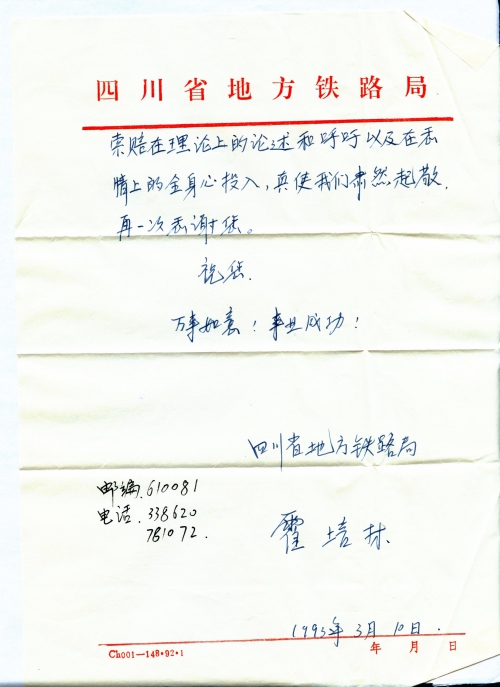 四川省地方铁路局
索赔在理论上的论述和呼吁以及在表
情上的全身心投入，真使我们肃然起敬.
再一次表谢您。
祝您.
万事如意！事业成功！
四川省地方铁路局
邮编.610081
电话.338620
781072.
霍培林
1993年3月10日.
年 月 日
Ch001—148·92·1